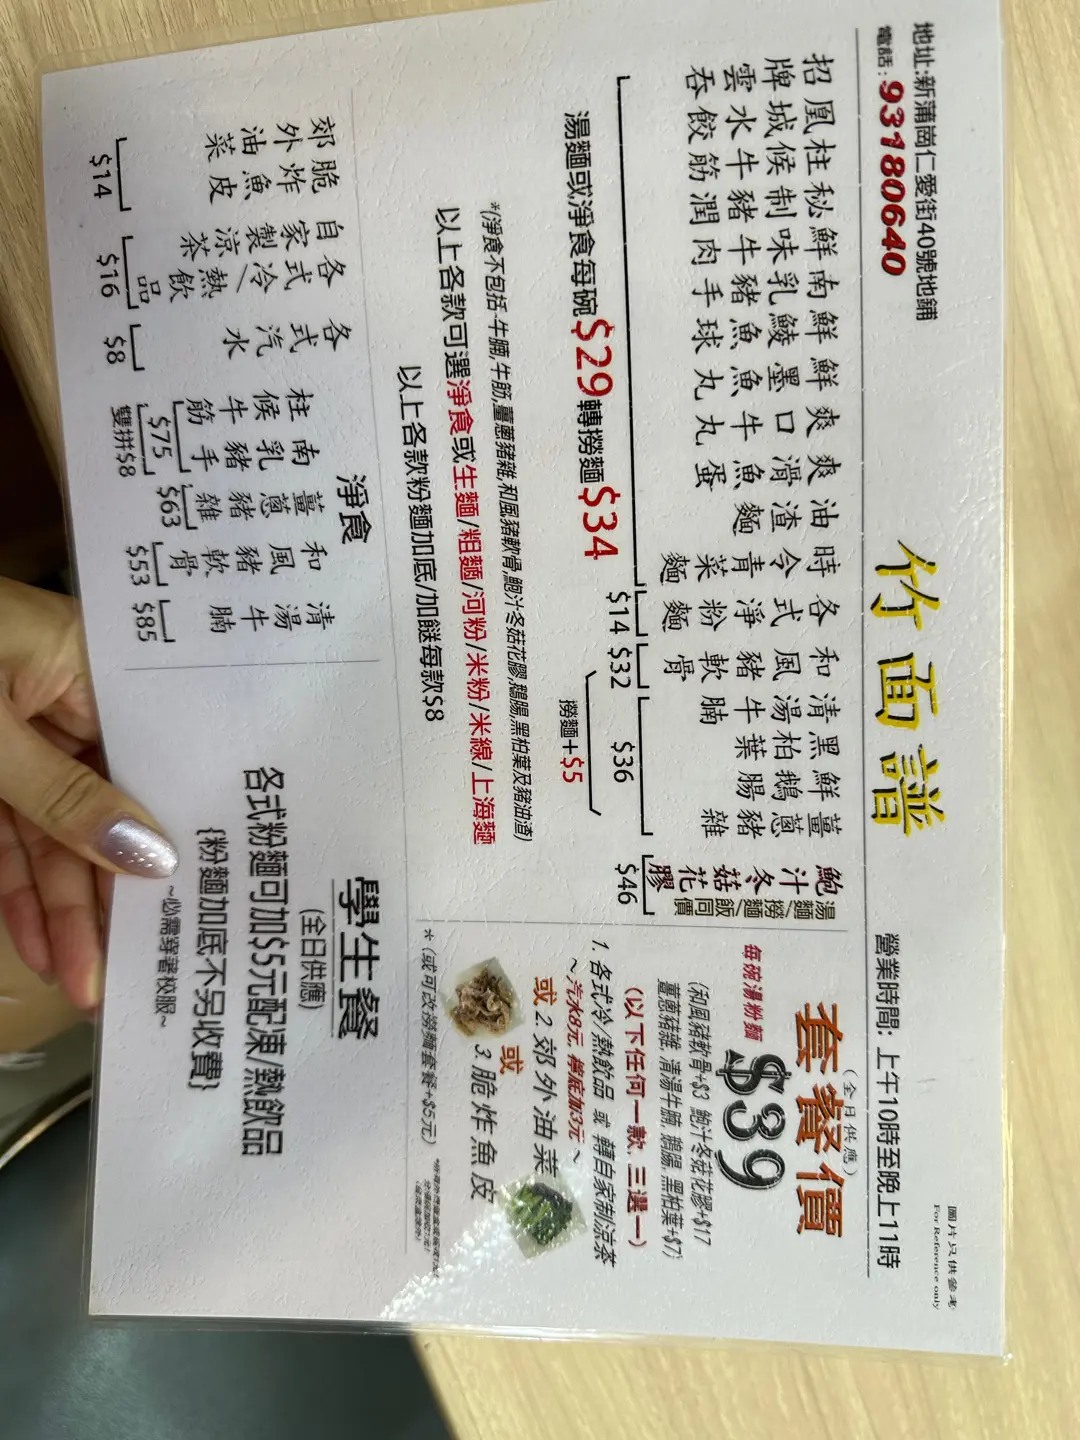 地址:新蒲崗仁愛街40號地鋪
電話:93180640
竹面譜
營業時間: 上午10時至晚上11時
圖片只供參考
For Reference only
招牌雲吞
凰城水餃
柱候牛筋
秘制豬潤
鮮味牛肉
南乳豬手
鮮鯪魚球
鮮墨魚丸
爽口牛丸
爽滑魚蛋
油渣麵
時令青菜麵
各式淨粉麵
和風豬軟骨
清湯牛腩
黑柏葉
鮮鵝腸
薑蔥豬雜
鮑汁冬菇花膠
湯麵/撈麵/飯同價
湯麵或淨食每碗$29轉撈麵$34
$14
$32
$36
撈麵+$5
$46
*(淨食不包括-牛腩,牛筋,薑蔥豬雜,和風豬軟骨,鮑汁冬菇花膠,鵝腸,黑柏葉及豬油渣)
以上各款可選淨食或生麵/粗麵/河粉/米粉/米線/上海麵
以上各款粉麵加底/加餸每款$8
郊外油菜
脆炸魚皮
$14
自家製涼茶
各式冷/熱飲品
$16
各式汽水
$8
淨食
柱候牛筋
南乳豬手
$75
雙拼$8
薑蔥豬雜
$63
和風豬軟骨
$53
清湯牛腩
$85
套餐價
(全日供應)
每碗湯粉麵 $39
(和風豬軟骨+$3 鮑汁冬菇花膠+$17
薑蔥豬雜, 清湯牛腩, 鵝腸, 黑柏葉+$7)
(以下任何一款, 三選一)
1. 各式冷/熱飲品 或 轉自家制涼茶
~汽水8元, 樽底加3元~
或 2. 郊外油菜
或
3. 脆炸魚皮
*(或可改撈麵套餐+$5元)
學生餐
(全日供應)
各式粉麵可加$5元配凍/熱飲品
{粉麵加底不另收費}
~必需穿著校服~